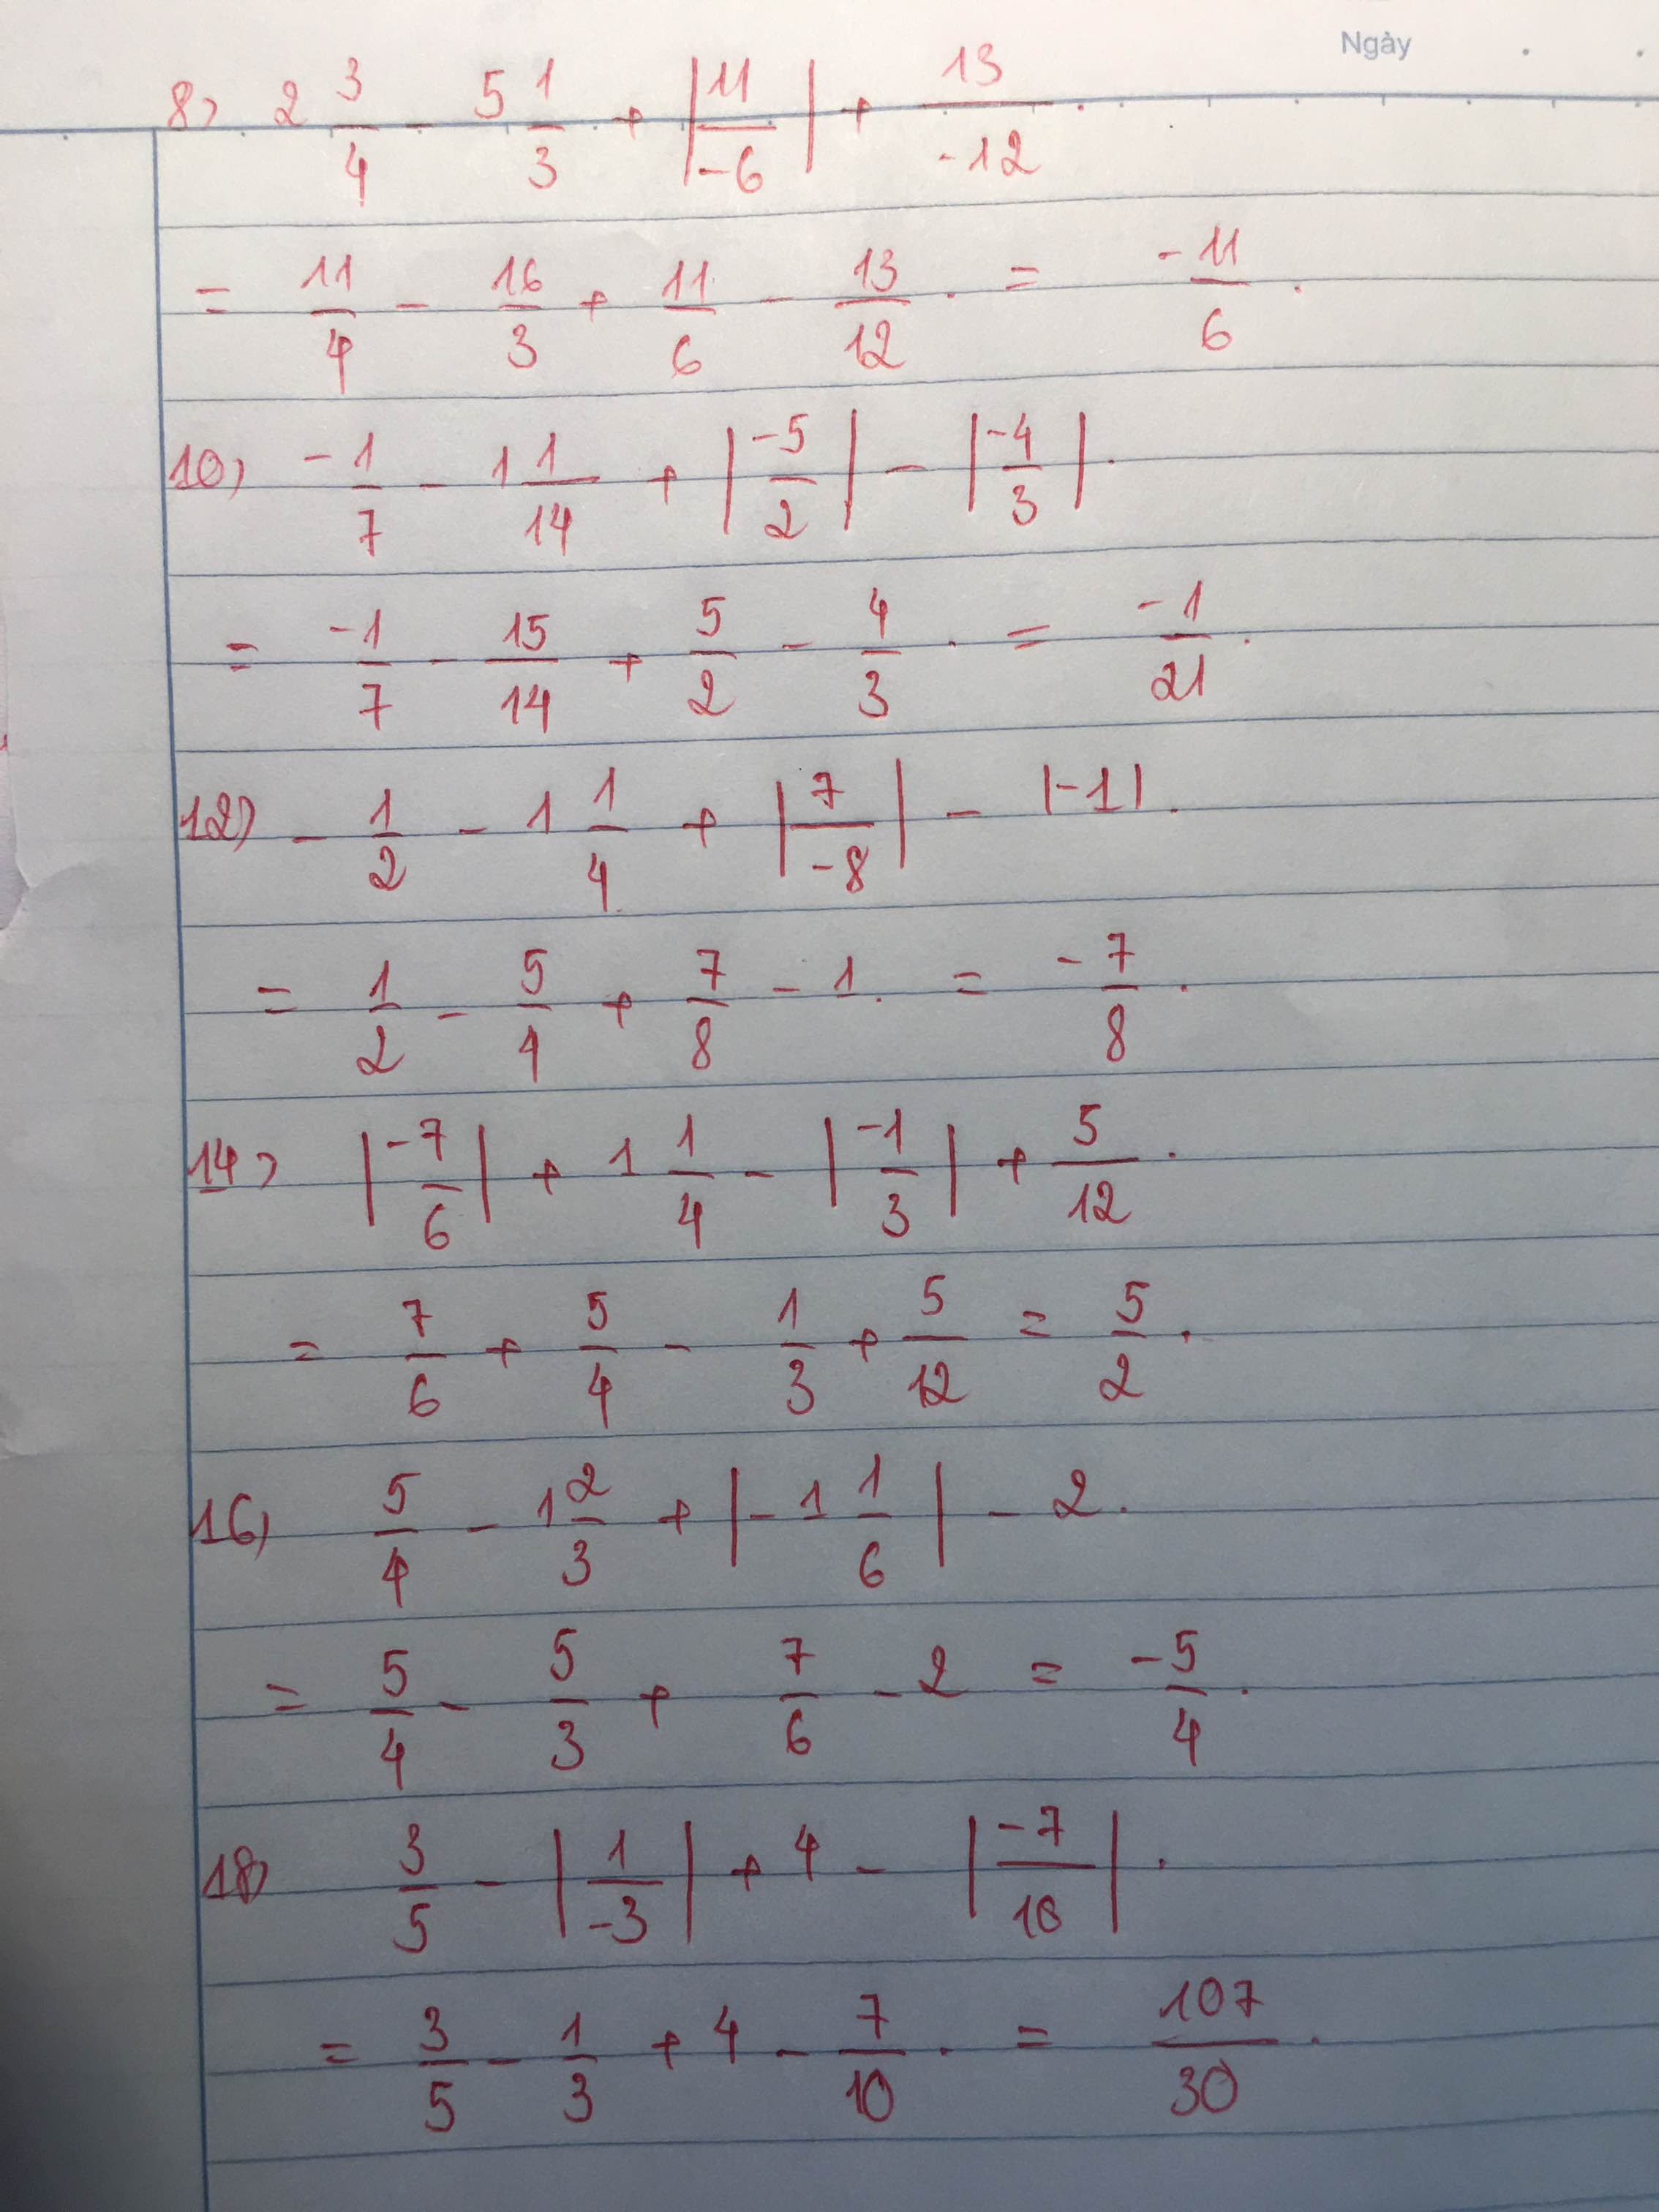 Ngày
8) 2 3/4 - 5 1/3 + |11/-6| + 13/-12.
= 11/4 - 16/3 + 11/6 - 13/12. = -11/6.
10) -1/7 - 1 1/14 + |-5/2| - |-4/3|.
= -1/7 - 15/14 + 5/2 - 4/3. = -1/21.
12) - 1/2 - 1 1/4 + |7/-8| - |-1|.
= 1/2 - 5/4 + 7/8 - 1. = -7/8.
14) |-7/6| + 1 1/4 - |-1/3| + 5/12.
= 7/6 + 5/4 - 1/3 + 5/12 = 5/2.
16) 5/4 - 1 2/3 + |-1 1/6| - 2.
= 5/4 - 5/3 + 7/6 - 2 = -5/4.
18) 3/5 - |1/-3| + 4 - |-7/10|.
= 3/5 - 1/3 + 4 - 7/10. = 107/30.